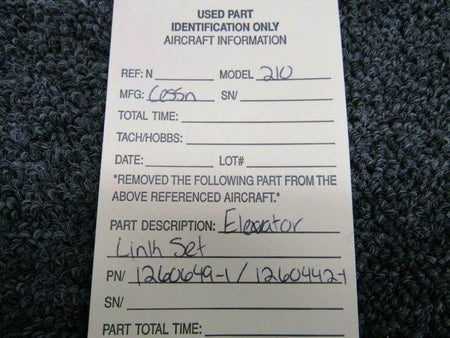 USED PART
IDENTIFICATION ONLY
AIRCRAFT INFORMATION
REF: N MODEL 210
MFG: Cessn SN/
TOTAL TIME:
TACH/HOBBS:
DATE: LOT#
*REMOVED THE FOLLOWING PART FROM THE
ABOVE REFERENCED AIRCRAFT.*
PART DESCRIPTION: Elevator
Link Set
PN/ 1260649-1 / 1260442-1
SN/
PART TOTAL TIME: